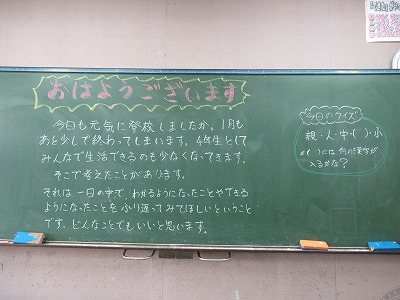 おはようございます
今日も元気に登校しましたか。1月も
あと少しで終わってしまいます。4年生として
みんなで生活できるのも少なくなってきます。
そこで考えたことがあります。
それは一日の中で、わかるようになったことやできる
ようになったことをふり返ってみてほしいということ
です。どんなことでもいいと思います。
今日のクイズ
親・人・中・( )・小
※( )には何の漢字が
入るかな？